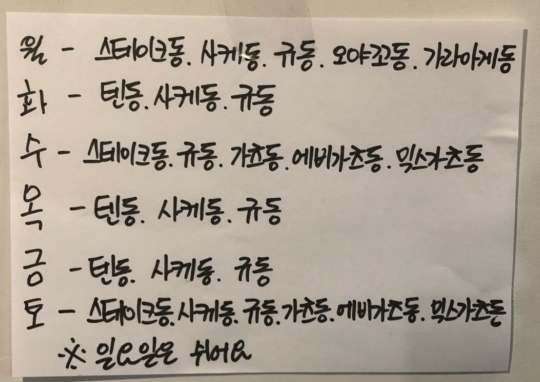 월 - 스테이크동. 사케동. 규동. 오야꼬동. 가라아게동
화 - 텐동. 사케동. 규동
수 - 스테이크동. 규동. 가츠동. 에비가츠동. 믹스가츠동
목 - 텐동. 사케동. 규동
금 - 텐동. 사케동. 규동
토 - 스테이크동. 사케동. 규동. 가츠동. 에비가츠동. 믹스가츠동
※ 일요일은 쉬어요